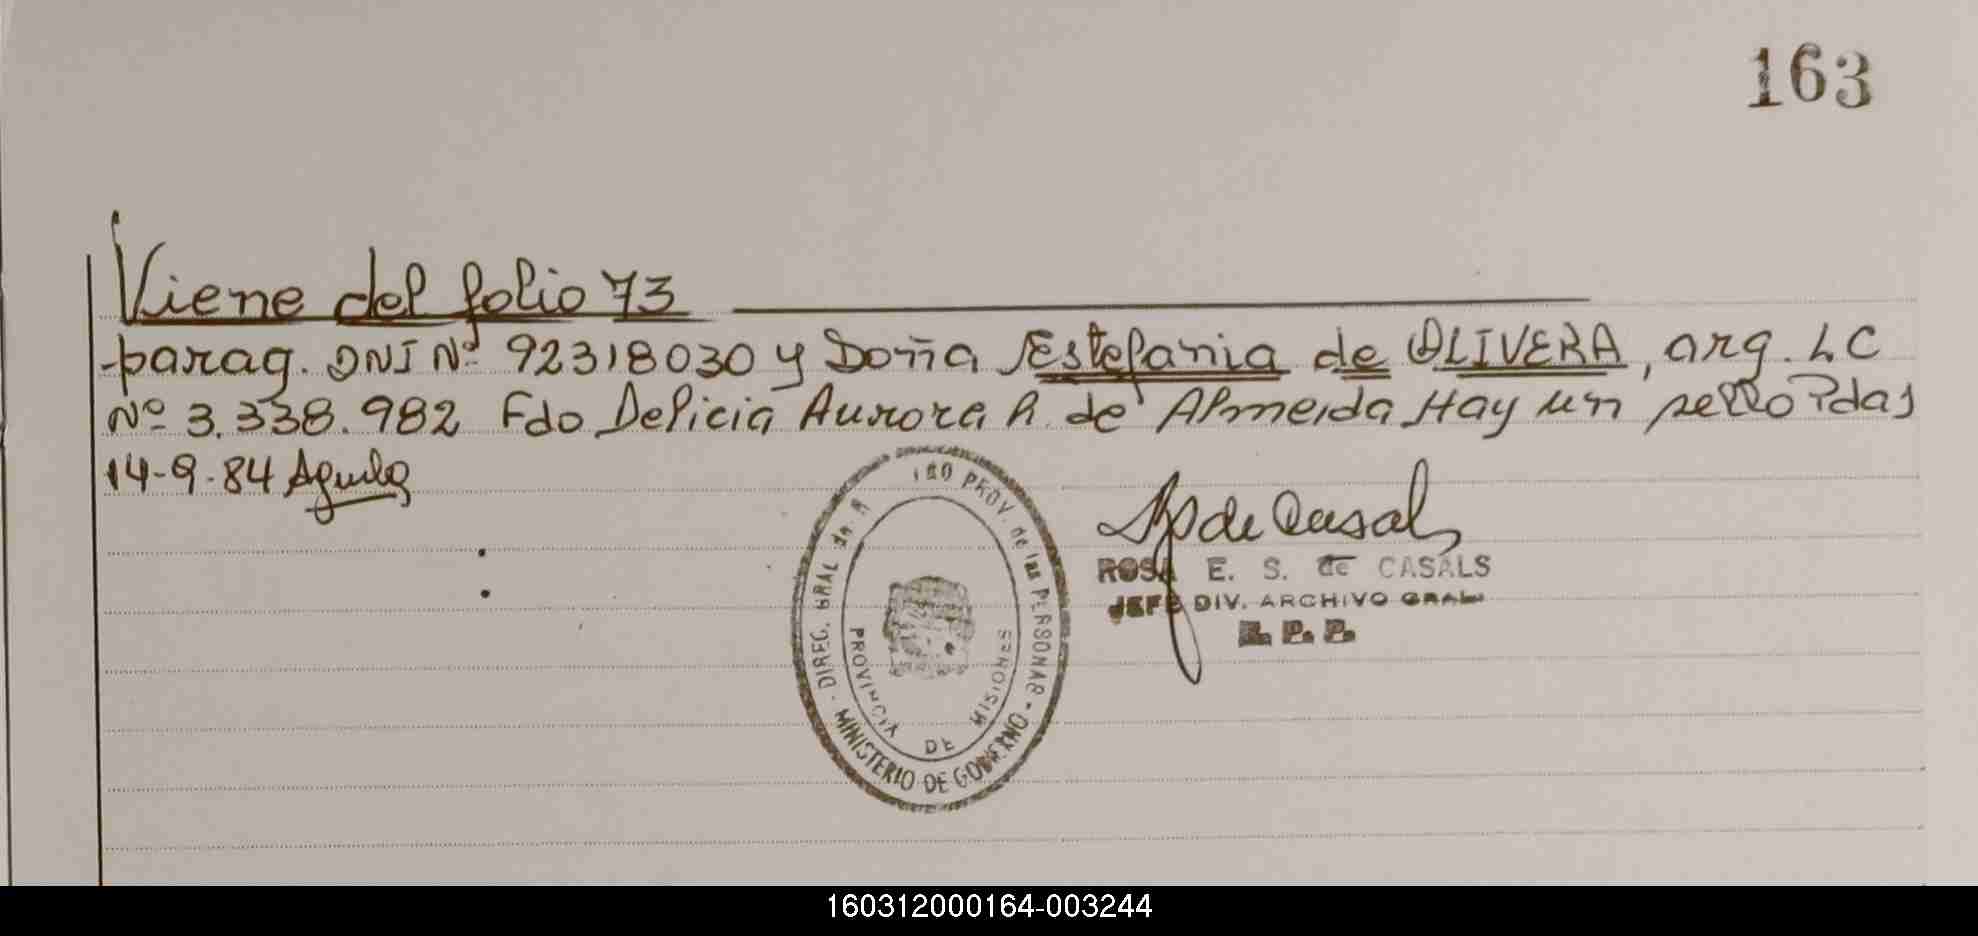 163
Viene del folio 73
parag. DNI Nº 92318030 y Doña Estefania de OLIVERA, arg. LC
Nº 3.338.982 Fdo Delicia Aurora R. de Almeida Hay un sello Pdas
14-9-84 Aguila
DIREC. GRAL de R PROV. de las PERSONAS - MINISTERIO DE GOBIERNO -
PROVINCIA DE MISIONES
de Casals
ROSA E. S. de CASALS
JEFE DIV. ARCHIVO GRAL
R. P. P.
160312000164-003244